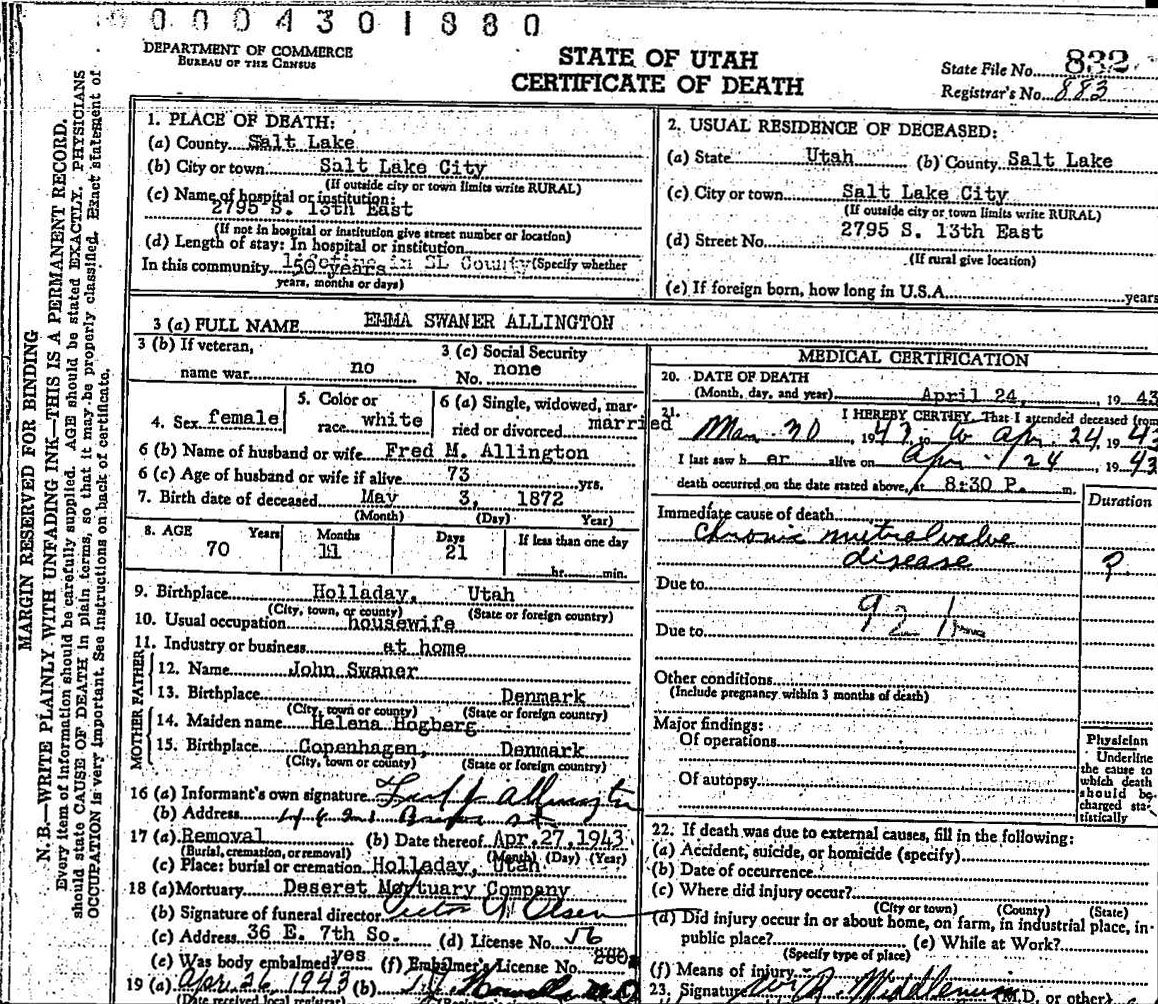 0004301880
DEPARTMENT OF COMMERCE
BUREAU OF THE CENSUS
STATE OF UTAH
CERTIFICATE OF DEATH
State File No. 832
Registrar's No. 883
MARGIN RESERVED FOR BINDING
N. B.—WRITE PLAINLY WITH UNFADING INK—THIS IS A PERMANENT RECORD.
Every item of information should be carefully supplied. AGE should be stated EXACTLY. PHYSICIANS
should state CAUSE OF DEATH in plain terms, so that it may be properly classified. Exact statement of
OCCUPATION is very important. See instructions on back of certificate.
1. PLACE OF DEATH:
(a) County Salt Lake
(b) City or town Salt Lake City
(If outside city or town limits write RURAL)
(c) Name of hospital or institution:
2795 S. 13th East
(If not in hospital or institution give street number or location)
(d) Length of stay: In hospital or institution
In this community 50 years in SL County (Specify whether
years, months or days)
2. USUAL RESIDENCE OF DECEASED:
(a) State Utah (b) County Salt Lake
(c) City or town Salt Lake City
(If outside city or town limits write RURAL)
2795 S. 13th East
(d) Street No.
(If rural give location)
(e) If foreign born, how long in U.S.A. years
3 (a) FULL NAME EMMA SWANER ALLINGTON
3 (b) If veteran,
name war no
3 (c) Social Security
No. none
4. Sex female
5. Color or
race white
6 (a) Single, widowed, mar-
ried or divorced married
6 (b) Name of husband or wife Fred M. Allington
6 (c) Age of husband or wife if alive 73 yrs.
7. Birth date of deceased May 3, 1872
(Month) (Day) Year)
8. AGE Years Months Days If less than one day
70 11 21
hr. min.
9. Birthplace Holladay, Utah
(City, town, or county) (State or foreign country)
10. Usual occupation housewife
11. Industry or business at home
FATHER
12. Name John Swaner
13. Birthplace Denmark
(City, town or county) (State or foreign country)
MOTHER
14. Maiden name Helena Hogberg
15. Birthplace Copenhagen, Denmark
(City, town or county) (State or foreign country)
16 (a) Informant's own signature Allington
(b) Address
17 (a) Removal (b) Date thereof Apr. 27, 1943
(Burial, cremation, or removal) (Month) (Day) (Year)
(c) Place: burial or cremation Holladay, Utah
18 (a) Mortuary Deseret Mortuary Company
(b) Signature of funeral director Victor Olsen
(c) Address 36 E. 7th So. (d) License No. 56
(e) Was body embalmed? yes (f) Embalmer's License No. 280
19 (a) Apr. 26, 1943 (b)
(Date received local registrar)
MEDICAL CERTIFICATION
20. DATE OF DEATH
(Month, day, and year) April 24, 19 43
21. I HEREBY CERTIFY, That I attended deceased from
Mar 30, 1943, to Apr. 24, 1943
I last saw h er alive on Apr. 24 1943
death occurred on the date stated above, at 8:30 P. m.
Duration
Immediate cause of death
Chronic mitral valve
disease ?
Due to
92
Due to
Other conditions
(Include pregnancy within 3 months of death)
Major findings:
Of operations
Of autopsy
Physician
Underline
the cause to
which death
should be
charged sta-
tistically
22. If death was due to external causes, fill in the following:
(a) Accident, suicide, or homicide (specify)
(b) Date of occurrence
(c) Where did injury occur?
(City or town) (County) (State)
(d) Did injury occur in or about home, on farm, in industrial place, in
public place? (e) While at Work?
(Specify type of place)
(f) Means of injury
23. Signature (M.D. or other)